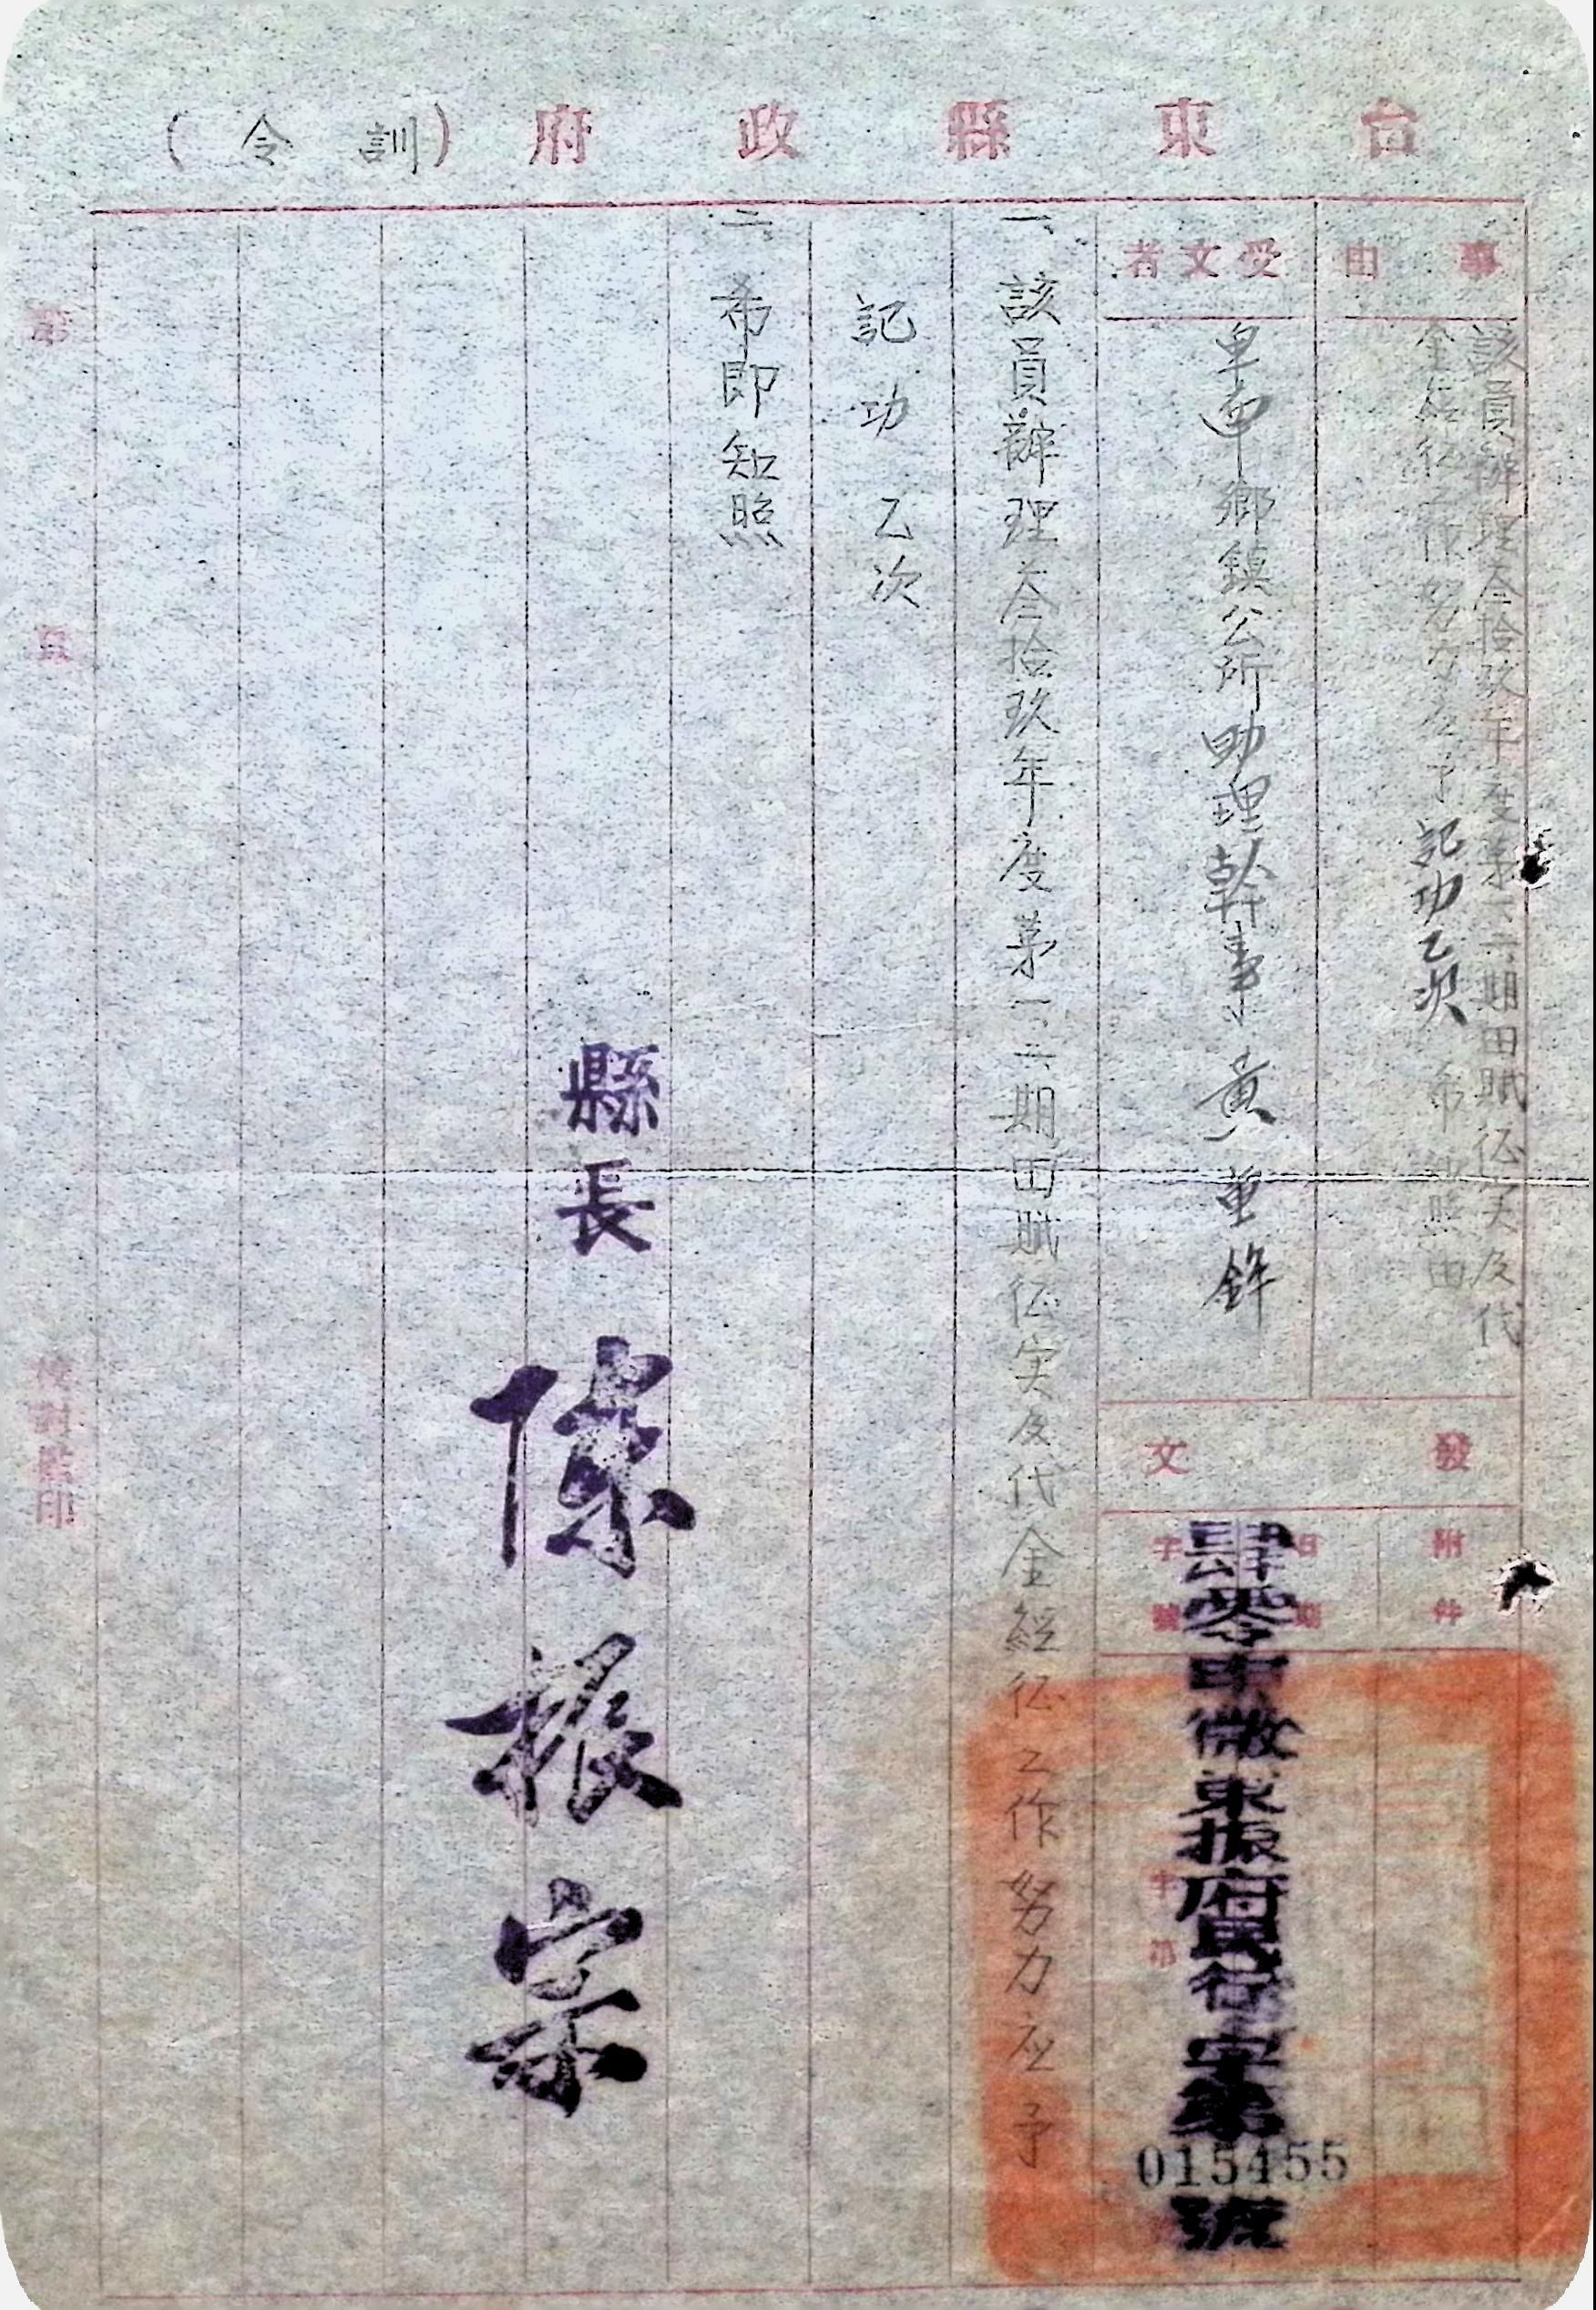 台東縣政府(訓令)
事由
該員辦理叁拾玖年度第一二期田賦征实及代
金經征工作努力应予記功乙次 希知照由
受文者
卑南鄉鎮公所助理幹事 黃重鉾
發文
附件
日期
字號
肆零申微東振府民行字第015455號
字第
一、該員辦理叁拾玖年度第一、二期田賦征实及代金經征工作努力应予
記功乙次
二、希即知照
縣長 陳振宗
第
頁
校對監印